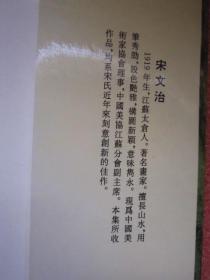 宋文治
1919年生,江蘇太倉人。著名畫家。擅長山水,用
筆秀勁,設色艷雅,構圖新穎,意味雋永。現爲中國美
術家協會理事,中國美協江蘇分會副主席。本集所收
作品,均系宋氏近年來刻意創新的佳作。